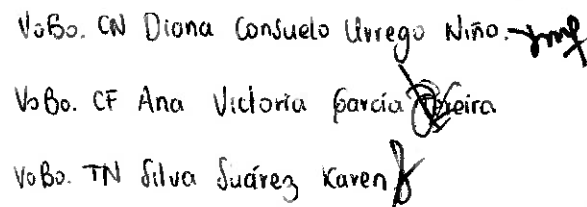 VoBo. CN Diana Consuelo Urrego Niño.
VoBo. CF Ana Victoria García Pereira
VoBo. TN Silva Suárez Karen